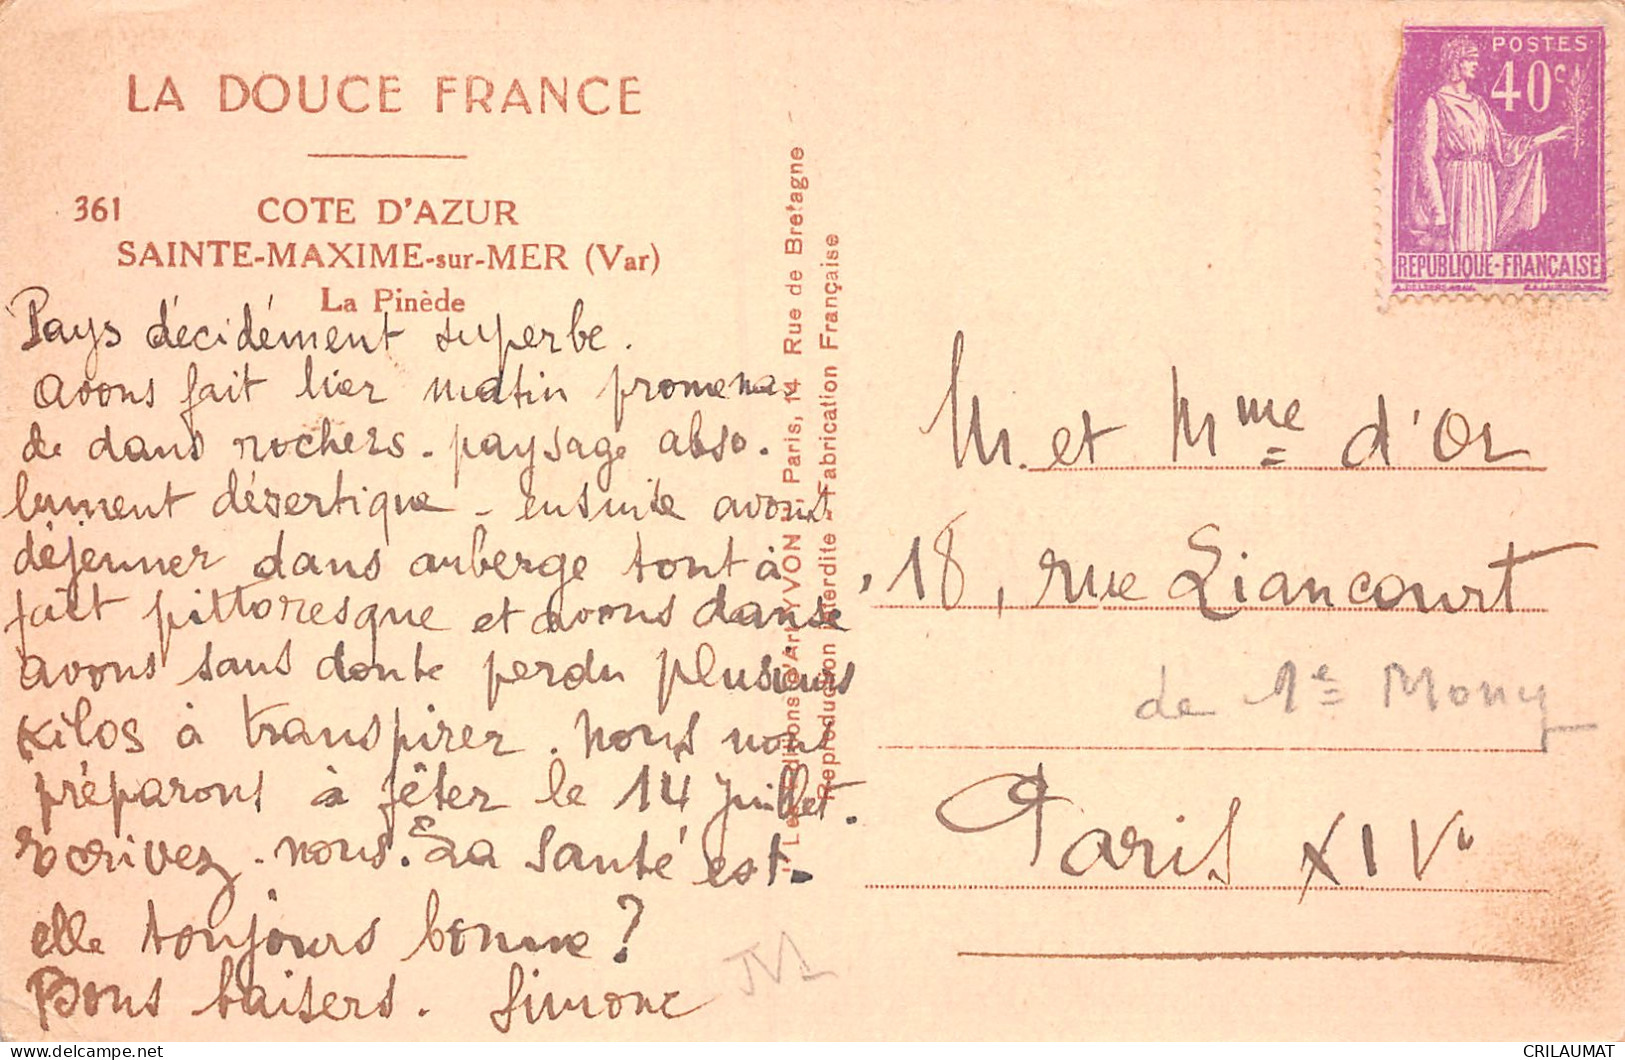 LA DOUCE FRANCE
361 COTE D'AZUR
SAINTE-MAXIME-sur-MER (Var)
La Pinède
Pays décidément superbe.
avons fait hier matin promena
de dans rochers - paysage abso-
lument désertique - ensuite avons
déjeuner dans auberge tout à
fait pittoresque et avons danse
avons sans doute perdu plusieurs
kilos à transpirer. nous nous
préparons à fêter le 14 juillet.
Écrivez-nous. La santé est-
elle toujours bonne ?
Bons baisers. Simone
Les Éditions d'Art YVON - Paris, 14 Rue de Bretagne
Reproduction Interdite - Fabrication Française
POSTES
40c
REPUBLIQUE-FRANÇAISE
M. et Mme d'Or
18, rue Liancourt
Paris XIVe
CRILAUMAT